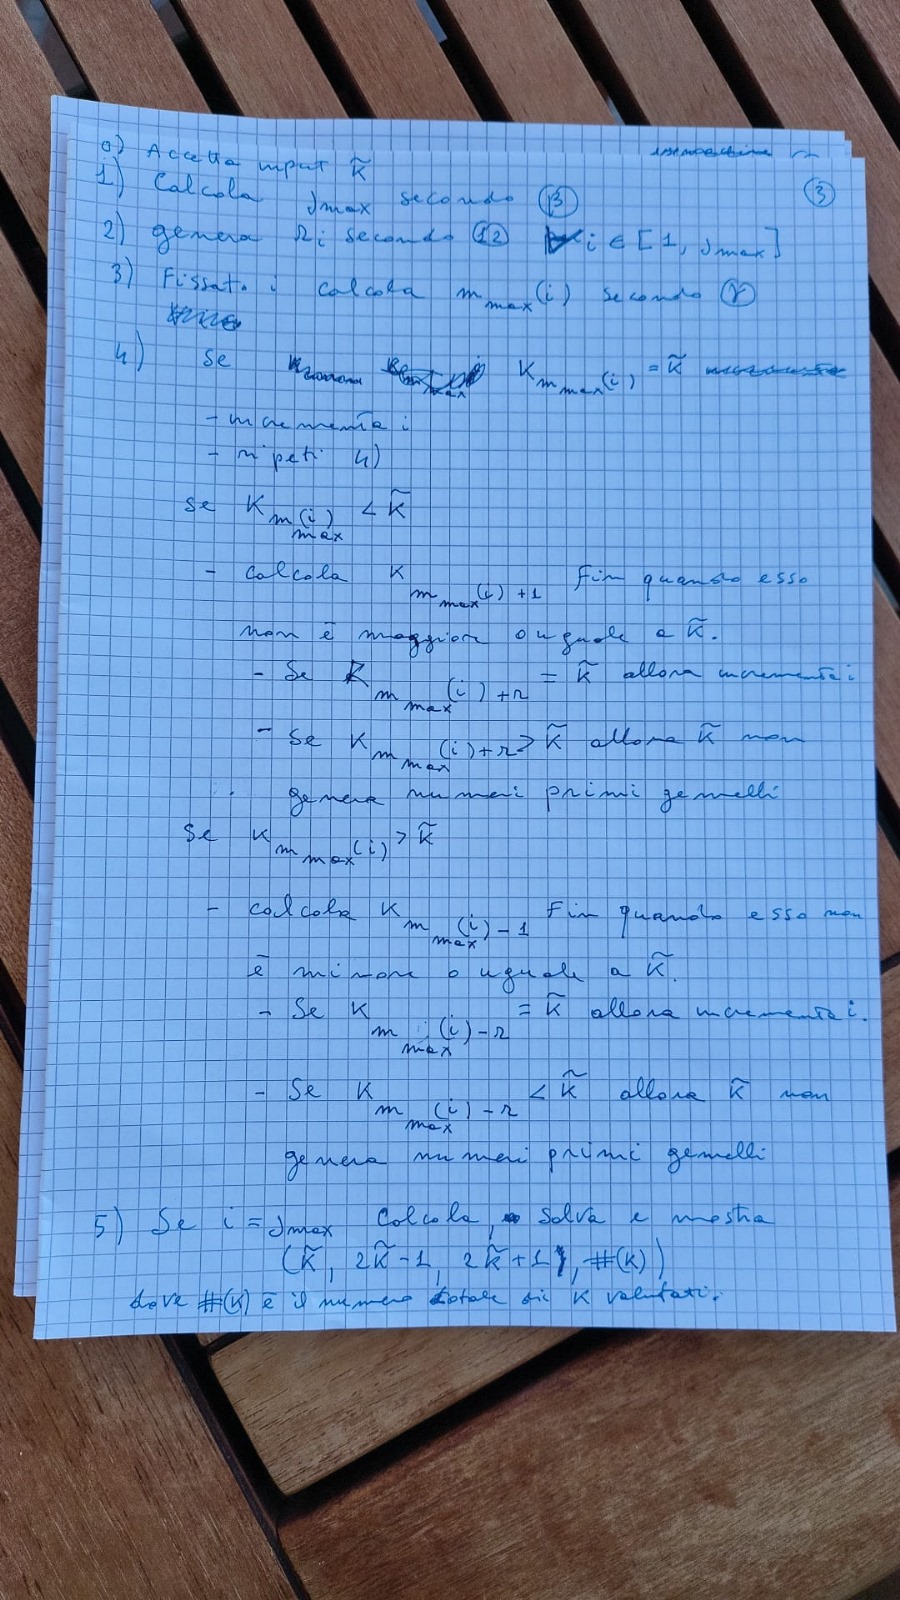 ③
0) Accetta input k̃
1) Calcola Jmax secondo ⓑ
2) genera r_i secondo ⑫ i ∈ [1, Jmax]
3) Fissato i calcola m_max(i) secondo ⓥ
4) Se K_{m_max(i)} = k̃
- incrementa i
- ripeti 4)
Se K_{m_max(i)} < k̃
- calcola K_{m_max(i)+1} fin quando esso
non è maggiore o uguale a k̃.
- Se K_{m_max(i)+r} = k̃ allora incrementa i
- Se K_{m_max(i)+r} > k̃ allora k̃ non
genera numeri primi gemelli
Se K_{m_max(i)} > k̃
- calcola K_{m_max(i)-1} fin quando esso non
è minore o uguale a k̃.
- Se K_{m_max(i)-r} = k̃ allora incrementa i.
- Se K_{m_max(i)-r} < k̃ allora k̃ non
genera numeri primi gemelli
5) Se i = Jmax calcola, salva e mostra
(k̃, 2k̃-1, 2k̃+1, #(K))
dove #(K) è il numero totale di K valutati.